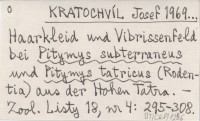 0 KRATOCHVÍL Josef 1969...
Haarkleid und Vibrissenfeld
bei Pitymys subterraneus
und Pitymys tatricus (Roden-
tia) aus der Hohen Tatra. —
Zool. Listy 18, nr 4: 295-308.